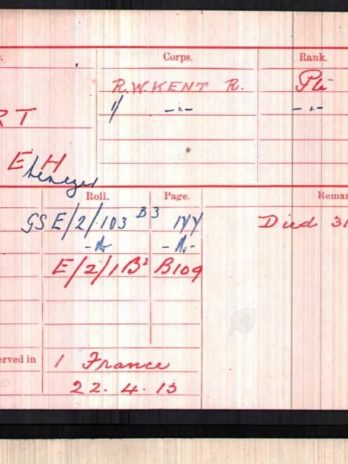 Corps. Rank.
R.W.KENT R. Pte
" -"- -"-
RT
E H
Ebenezer
Roll. Page. Remar
E/2/103 B3
E/2/1B² B109
Died 31
erved in 1 France
22.4.15